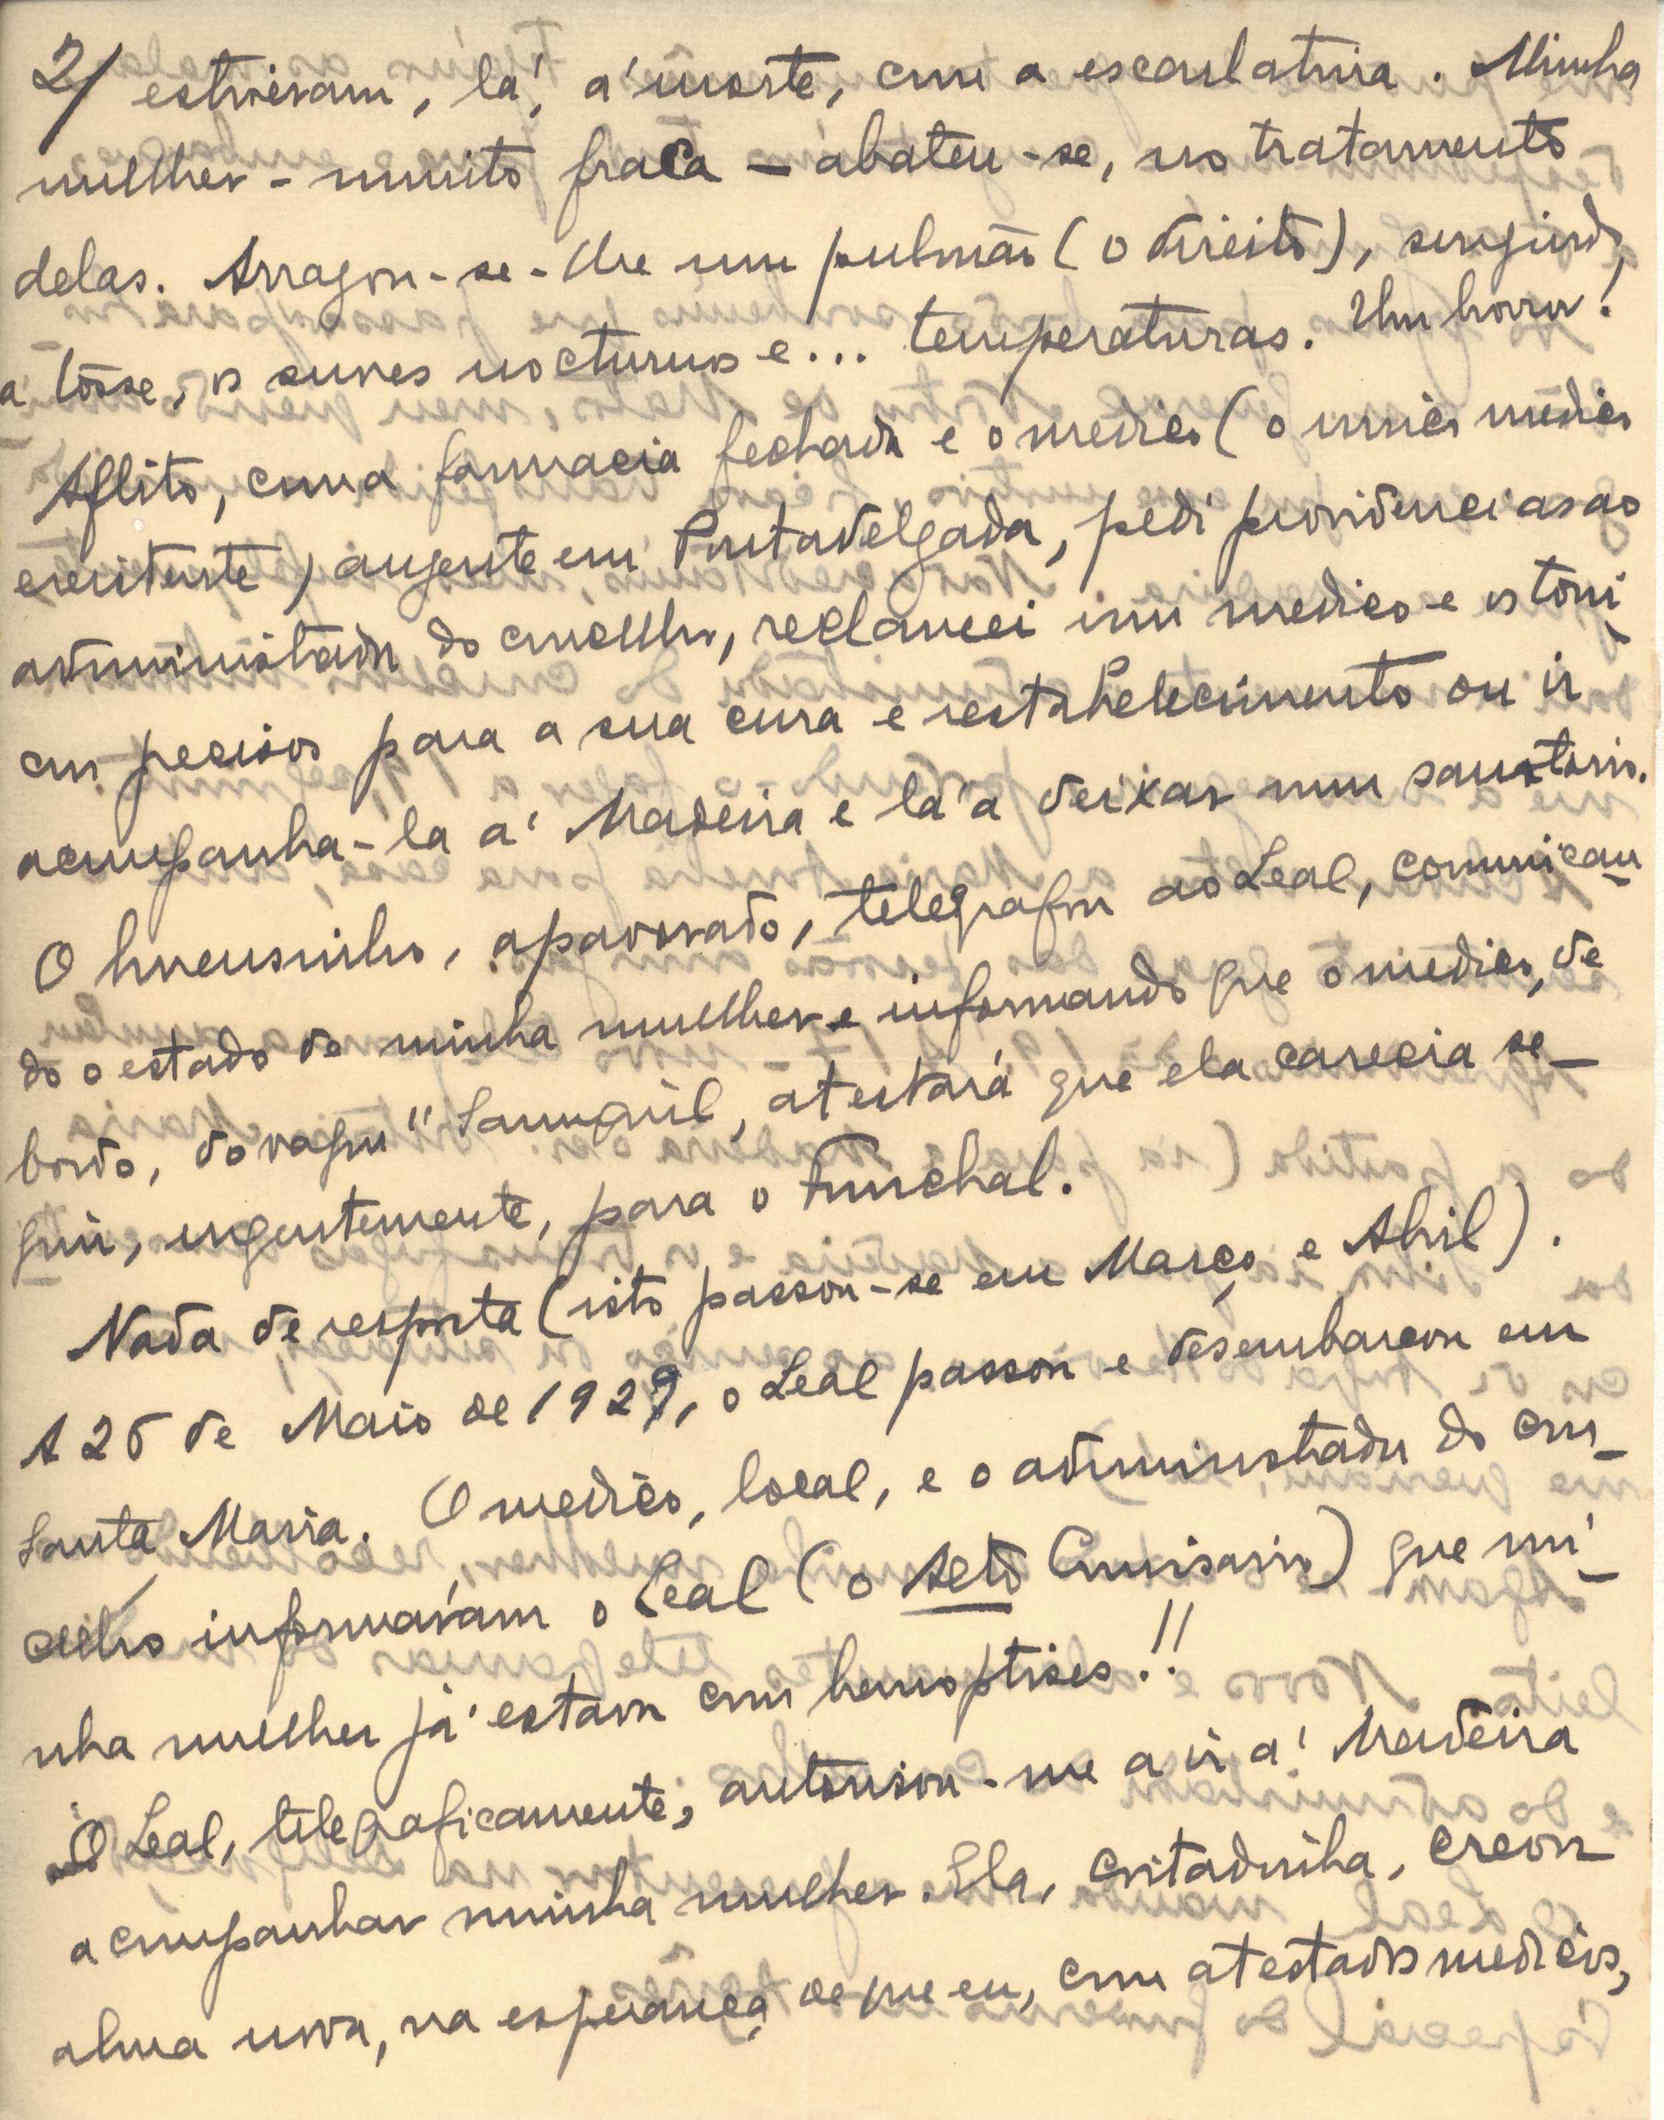 2/ estiveram, lá, á morte, com a escarlatina. Minha
mulher - muito fraca - abateu-se, no tratamento
delas. Arragou-se-lhe um pulmão (o direito), surgindo,
a tôsse, os suores nocturnos e... temperaturas. Um horror!
Aflito, com a farmacia fechada e o medico (o unico médico
existente) ausente em Pontadelgada, pedi providencias ao
administrador do concelho, reclamei um medico e os toni-
cos precisos para a sua cura e restabelecimento ou ir
acompanha-la á Madeira e lá a deixar num sanatorio.
O homensinho, apavorado, telegrafou ao Leal, comunican-
do o estado de minha mulher e informando que o medico, de
bordo, do vapor "San Miguel, atestará que ela carecia se-
guir, urgentemente, para o Funchal.
Nada de resposta (isto passou-se em Março e Abril).
A 26 de Maio de 1929, o Leal passou e desembarcou em
Santa Maria. O medico, local, e o administrador do con-
celho informáram o Leal (o Alto Comissario) que mi-
nha mulher já estava com hemoptises!!
O Leal, telegraficamente, autorisou-me a ir á Madeira
acompanhar minha mulher. Ela, coitadinha, creou
alma nova, na esperança de que eu, com atestados medicos,